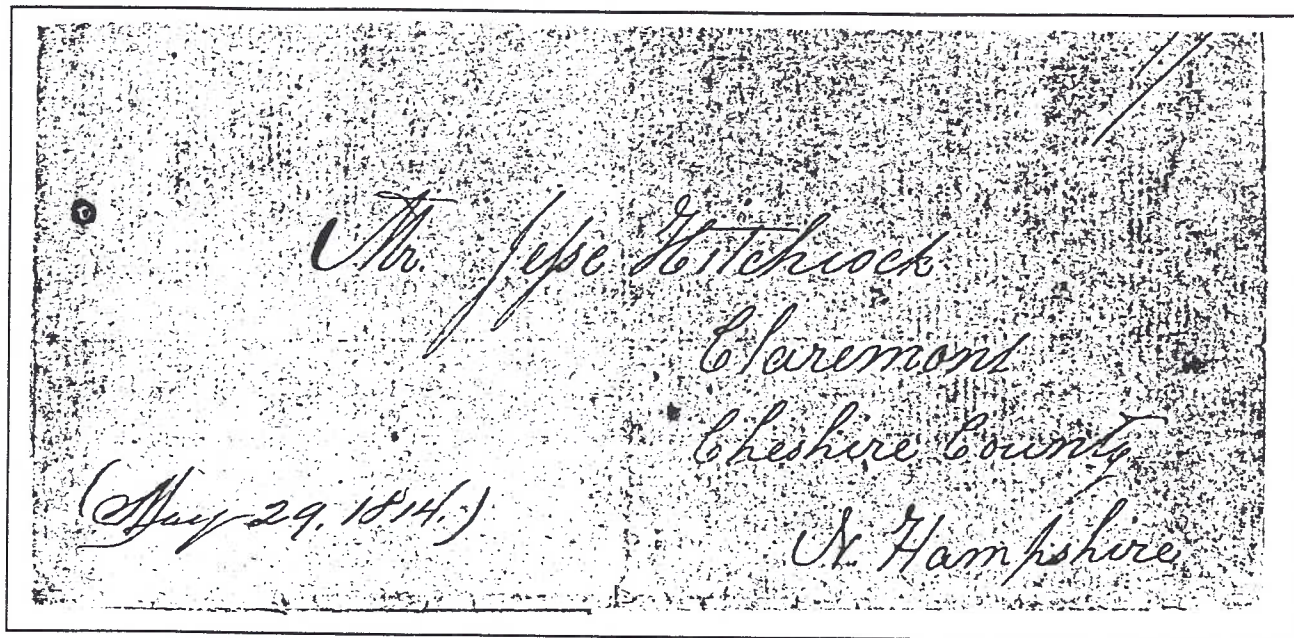 Mr. Jesse Hitchcock
Claremont
Cheshire County
N. Hampshire
(May 29, 1814.)